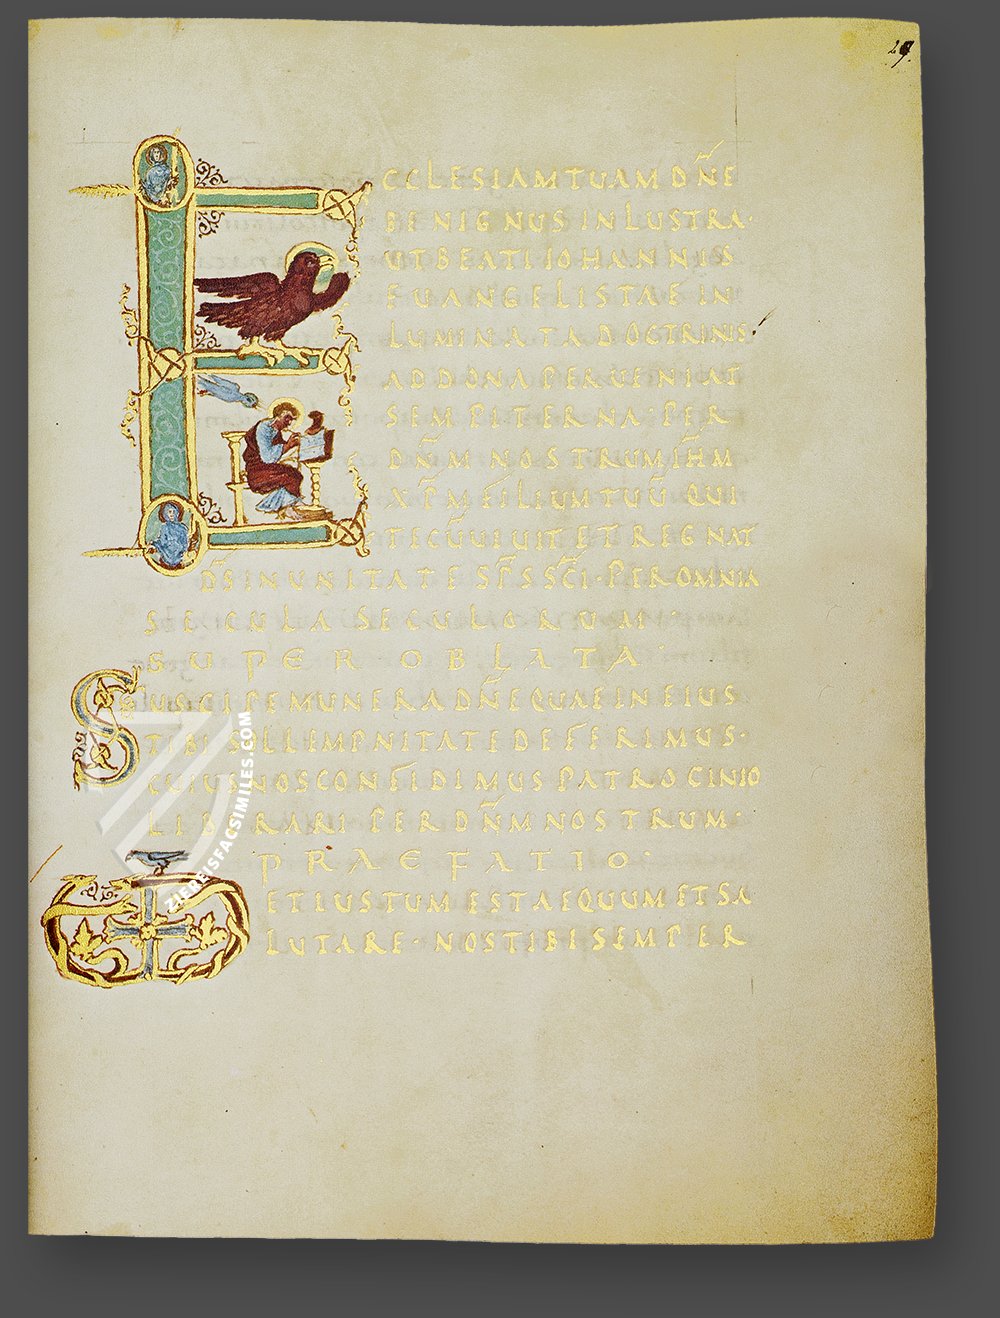 29.
ECCLESIAM TUAM DÑE
BENIGNUS INLUSTRA·
UT BEATI IOHANNIS
EUANGELISTAE IN
LUMINATA DOCTRINIS
AD DONA PERUENIAT
SEMPITERNA· PER
DÑM NOSTRUM IHM
XPM FILIUM TUŪ QUI
TECŪ UIUIT ET REGNAT
DS IN UNITATE SPS SCI· PER OMNIA
SECULA SECULORUM·
SUPER OBLATA·
SUSCIPE MUNERA DÑE QUAE IN EIUS
TIBI SOLLEMPNITATE DEFERIMUS·
CUIUS NOS CONFIDIMUS PATROCINIO
LIBERARI PER DÑM NOSTRUM·
PRAEFATIO·
ET IUSTUM EST AEQUUM ET SA
LUTARE· NOS TIBI SEMPER
ZIEREISFACSIMILES.COM